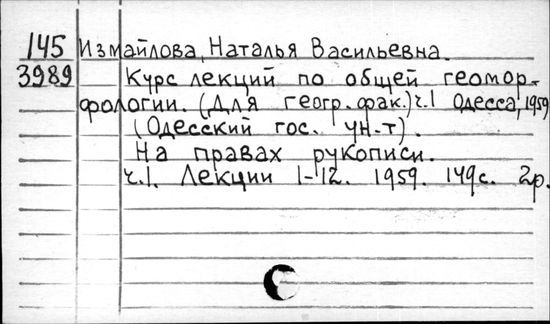 145 Измайлова, Наталья Васильевна.
3989 Курс лекций по общей геомор-
фологии. (Для геогр. фак.) ч.1 Одесса, 1959
(Одесский гос. ун-т).
На правах рукописи.
ч.1. Лекции 1-12. 1959. 149с. 2р.